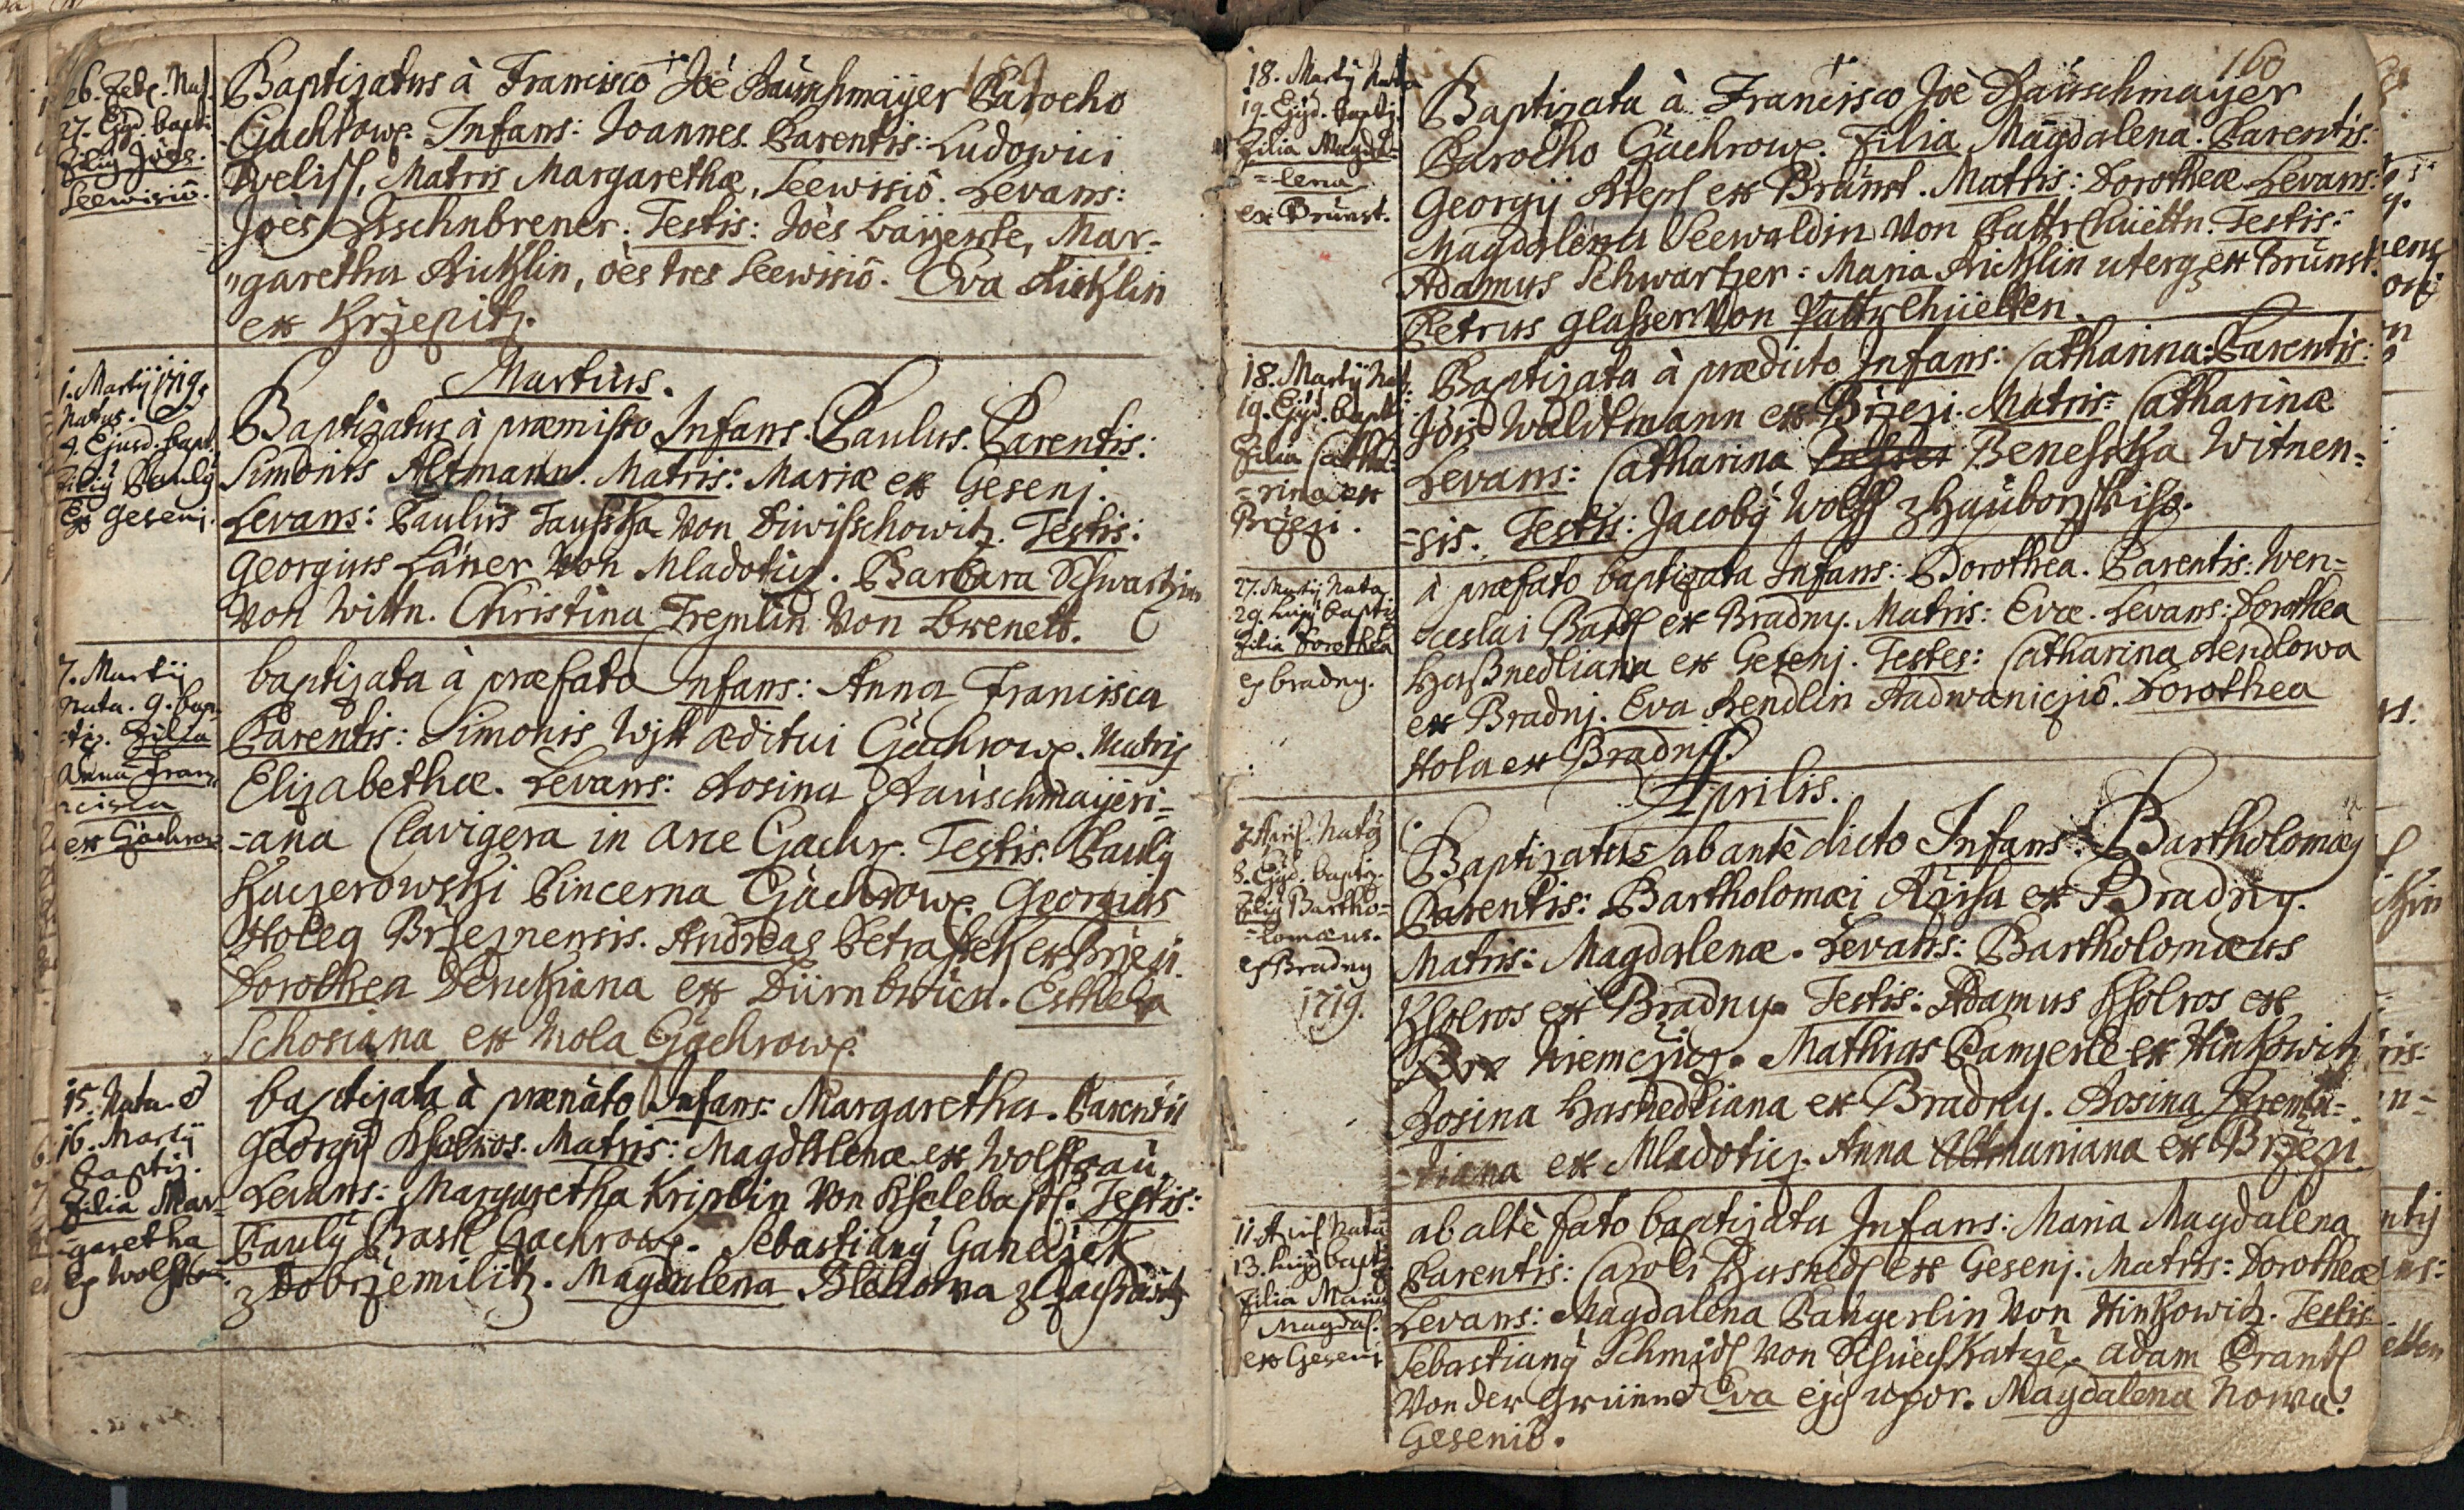 26. Febr. Nat.
27. Ejusd. bapti.
Filiy Joes.
Seewisiô.
Baptizatus à Francisco Joê Raüschmaÿer Parocho
Gachrow. Infans: Joannes. Parentis: Ludowici
Welisch, Matris Margarethæ, Seewisiô. Levans:
Joês Tischnbrener. Testis: Joês baÿerle, Mar-
garetha Ricklin, oês tres Seewisiô. Eva Ricklin
ex Krzepitz.
1. Martÿ 1719.
Natus.
4. Ejusd. bapt.
Filiy Pauly
ex Geseni.
Martius.
Baptizatus à præmisso Infans. Paulus. Parentis:
Simonis Altmann. Matris: Mariæ ex Gesenj.
Levans: Paulus Tauska Von Diwisschowitz. Testis:
Georgius Läner Von Mladotitz. Barbara Schwartzin
Von Wittn. Christina Tremlin Von brenett.
7. Martÿ
Nata. 9. bap-
tiz. Filia
Anna Fran-
cisca
ex Gachrow
baptizata à præfato Infans: Anna Francisca
Parentis: Simonis Witt æditui Gachrow. Matris
Elizabethæ. Levans: Rosina Rauschmaÿeri-
-ana Clavigera in arce Gachr. Testis: Pauly
Kuczerowski Pincerna Gachrow. Georgius
Holeg Brzeznensis. Andreas Petrassek ex Brzezi.
Dorothea Denckiana ex Dürnbercn. Esthera
Schosiana ex Mola Gachrow.
15. Nata. et
16. Martÿ
baptiz.
Filia Mar-
garetha
ex Wolffgau.
baptizata à prænato Infans: Margaretha. Parentis
Georgÿ Kholros. Matris: Magdalenæ ex Wolffgau.
Levans: Margaretha Kriplin Von. Testis:
Pauly Bastl Gachrow. Sebastiany Ganeczek
z Dobrzemilitz. Magdalena Blehowa z
18. Martÿ Nata
19. Ejusd. baptiz.
Filia Magda-
=lena
ex Brunst.
160
Baptizata à Francisco Joê Raüschmaÿer
Parocho Gachrow. Filia Magdalena. Parentis:
Georgÿ Stepl ex Brunst. Matris: Dorotheæ Levans:
Magdalena Seewaldin Von Pattrchüettn. Testis:
Adamus Schwartzer: Maria Ricklin uterq ex Brunst.
Petrus glasser Von Pattrchüetten.
18. Martÿ Nat.
19. Ejusd. bapti.
Filia Catha-
=rina ex
Brzezi.
Baptizata à prædicto Infans: Catharina: Parentis:
Waldtmann ex Brzezi. Matris: Catharinæ
Levans: Catharina Benesska Witnen=
=sis. Testis: Jacoby Wolff z
27. Martÿ Nata.
29. huiy bapti
Filia Dorothea
ex bradny.
à præfato baptizata Infans: Dorothea. Parentis: Wen=
ceslai Bartl ex Bradny. Matris: Evæ. Levans: Dorothea
Hasnedliana ex Gesenj. Testes: Catharina Rendlowa
ex Bradnj. Eva Rendlin Radwaniczio. Dorothea
Hola ex Bradny.
7. Apris. Naty
8. Ejusd. baptiz.
Filiy Bartho=
=lomæus.
ex Bradny
1719.
Aprilis.
Baptizatus ab antè dicto Infans. Bartholomæy
Parentis: Bartholomæi Regisa ex Bradny.
Matris: Magdalenæ. Levans: Bartholomæus
Kholros ex Bradny. Testis: Adamus Kholros ex
Niemczicz. Mathias Pangerle ex Hinkowitz
Rosina Hasnedliana ex Bradny. Rosina
=diana ex Mladoticz. Anna Altmaniana ex Brzezi.
11. Apris Nata
13. huiy bapt.
Filia Maria
Magdal.
ex Geseni
ab altè fato baptizata Infans: Maria Magdalena
Parentis: Caroli Hasnedl ex Gesenj. Matris: Dorotheæ
Levans: Magdalena Pangerlin Von Hinkowitz. Testis
Sebastiany Schmidl Von. Adam Prantl
Von der Grünn et Eva ejy uxor. Magdalena Nowa.
Geseniô.